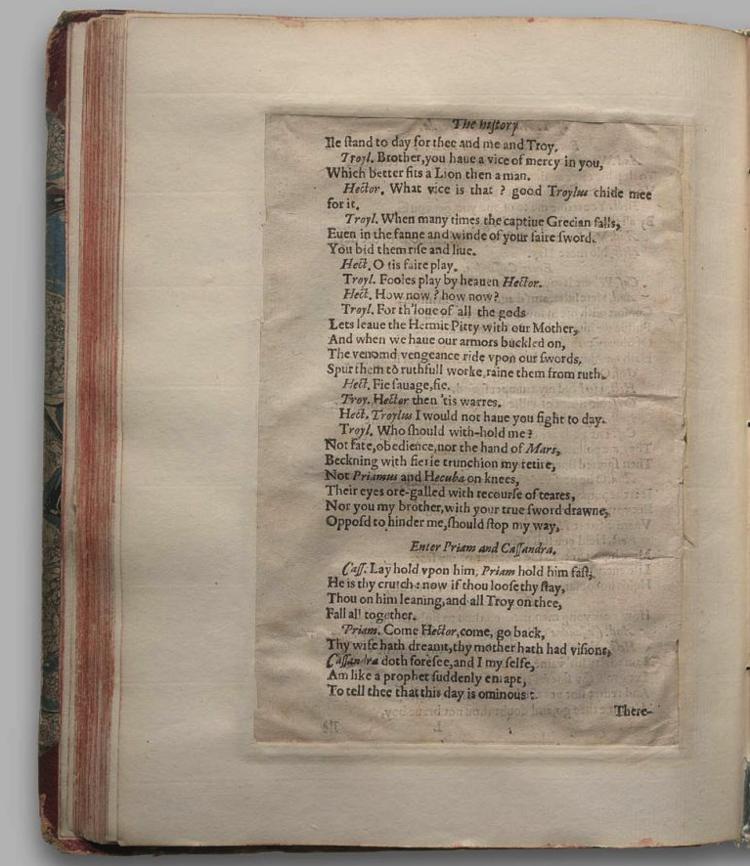 The history
Ile stand to day for thee and me and Troy.
Troyl. Brother,you haue a vice of mercy in you,
Which better fits a Lion then a man.
Hector. What vice is that ? good Troylus chide mee
for it.
Troyl. When many times the captiue Grecian falls,
Euen in the fanne and winde of your faire sword.
You bid them rise and liue.
Hect. O tis faire play.
Troyl. Fooles play by heauen Hector.
Hect. How now ? how now?
Troyl. For th'loue of all the gods
Lets leaue the Hermit Pitty with our Mother,
And when we haue our armors buckled on,
The venomd vengeance ride vpon our swords,
Spur them to ruthfull worke,raine them from ruth.
Hect. Fie sauage,fie.
Troy. Hector then 'tis warres.
Hect. Troylus I would not haue you fight to day.
Troyl. Who should with-hold me?
Not fate,obedience,nor the hand of Mars,
Beckning with fierie trunchion my retire,
Not Priamus and Hecuba on knees,
Their eyes ore-galled with recourse of teares,
Nor you my brother,with your true sword drawne,
Opposd to hinder me,should stop my way,
Enter Priam and Cassandra.
Cass. Lay hold vpon him, Priam hold him fast,
He is thy crutch: now if thou loose thy stay,
Thou on him leaning,and all Troy on thee,
Fall all together.
Priam. Come Hector,come, go back,
Thy wife hath dreamt,thy mother hath had visions,
Cassandra doth foresee,and I my selfe,
Am like a prophet suddenly enrapt,
To tell thee that this day is ominous:
There-